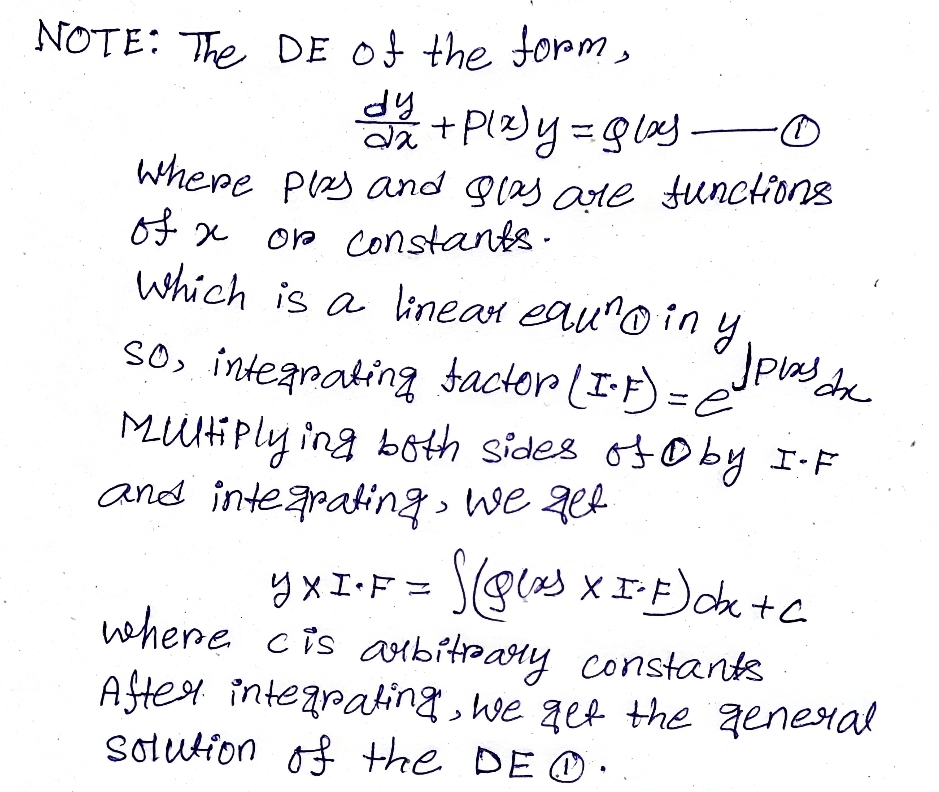 NOTE: The DE of the form,
dy/dx + P(x)y = Q(x) —— ①
where P(x) and Q(x) are functions
of x or constants.
Which is a linear equⁿ ① in y
so, integrating factor (I.F) = e^∫P(x)dx
Multiplying both sides of ① by I.F
and integrating, we get
y × I.F = ∫(Q(x) × I.F)dx + c
where c is arbitrary constants
After integrating, we get the general
solution of the DE ①.